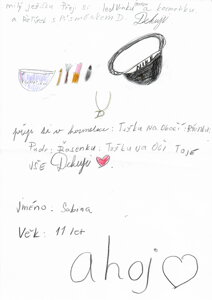 milý ježíšku Přeji si ledvinku a kosmetiku
a Řetízek s Písmenkem D. Děkuji
D
přeji si v kosmetice: Tušku na obočí
Pudr, Řasenku, Tušku na Oči. To je
vše Děkuji
Jméno: Sabina
Věk: 11 let
ahoj